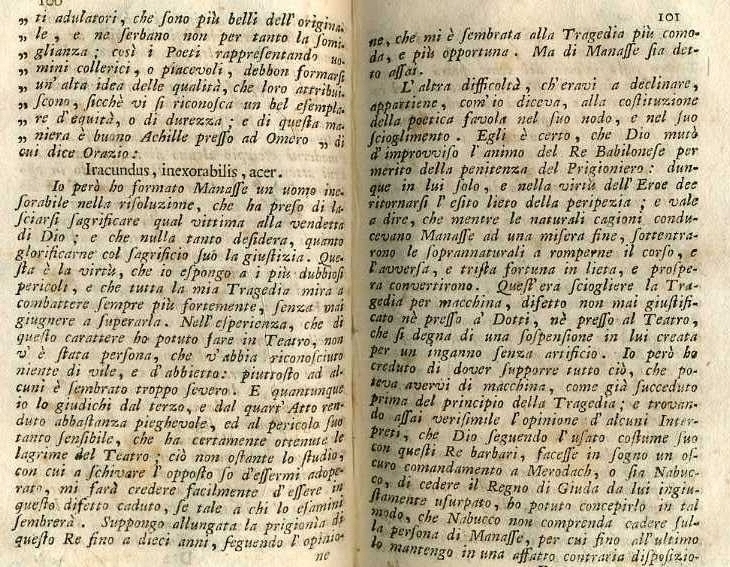 100
„ ti adulatori, che ſono più belli dell'origina-
„ le, e ne ſerbano non per tanto la ſomi-
„ glianza; così i Poeti rappreſentando uo-
„ mini collerici, o piacevoli, debbon formarſi
„ un'alta idea delle qualità, che loro attribui-
„ ſcono, ſicchè vi ſi riconoſca un bel eſempla-
„ re d'equità, o di durezza; e di queſta ma-
„ niera è buono Achille preſſo ad Omero „ di
cui dice Orazio:
Iracundus, inexorabilis, acer.
Io però ho formato Manaſſe un uomo ine-
ſorabile nella riſoluzione, che ha preſo di la-
ſciarſi ſagrificare qual vittima alla vendetta
di Dio; e che nulla tanto deſidera, quanto
glorificarne col ſagrificio ſuo la giuſtizia. Que-
ſta è la virtù, che io eſpongo a i più dubbioſi
pericoli, e che tutta la mia Tragedia mira a
combattere ſempre più fortemente, ſenza mai
giugnere a ſuperarla. Nell'eſperienza, che di
queſto carattere ho potuto fare in Teatro, non
v'è ſtata perſona, che v'abbia riconoſciuto
niente di vile, e d'abbietto: piuttoſto ad al-
cuni è ſembrato troppo ſevero. E quantunque
io lo giudichi dal terzo, e dal quart'Atto ren-
duto abbaſtanza pieghevole, ed al pericolo ſuo
tanto ſenſibile, che ha certamente ottenute le
lagrime del Teatro; ciò non oſtante lo ſtudio,
con cui a ſchivare l'oppoſto ſo d'eſſermi adope-
rato, mi farà credere facilmente d'eſſere in
queſto difetto caduto, ſe tale a chi lo eſamini
ſembrerà. Suppongo allungata la prigionìa di
queſto Re fino a dieci anni, ſeguendo l'opinio-
ne
101
ne, che mi è ſembrata alla Tragedia più como-
da, e più opportuna. Ma di Manaſſe ſia det-
to aſſai.
L'altra difficoltà, ch'eravi a declinare,
appartiene, com'io diceva, alla coſtituzione
della poetica favola nel ſuo nodo, e nel ſuo
ſcioglimento. Egli è certo, che Dio mutò
d'improvviſo l'animo del Re Babilonese per
merito della penitenza del Prigioniero: dun-
que in lui ſolo, e nella virtù dell'Eroe dee
ritornarſi l'eſito lieto della peripezia; e vale
a dire, che mentre le naturali cagioni condu-
cevano Manaſſe ad una miſera fine, ſottentra-
rono le ſoprannaturali a romperne il corſo, e
l'avverſa, e triſta fortuna in lieta, e proſpe-
ra convertirono. Queſt'era ſciogliere la Tra-
gedia per macchina, difetto non mai giuſtifi-
cato nè preſſo a' Dotti, nè preſſo al Teatro,
che ſi degna di una ſoſpenſione in lui creata
per un inganno ſenza artificio. Io però ho
creduto di dover ſupporre tutto ciò, che po-
teva avervi di macchina, come già ſucceduto
prima del principio della Tragedia; e trovan-
do aſſai veriſimile l'opinione d'alcuni Inter-
preti, che Dio ſeguendo l'uſato coſtume ſuo
con queſti Re barbari, faceſſe in ſogno un oſ-
curo comandamento a Merodach, o ſia Nabuc-
co, di cedere il Regno di Giuda da lui ingiu-
ſtamente uſurpato, ho potuto concepirlo in tal
modo, che Nabucco non comprenda cadere ſul-
la perſona di Manaſſe, per cui fino all'ultimo
lo mantengo in una affatto contraria diſpoſizio-